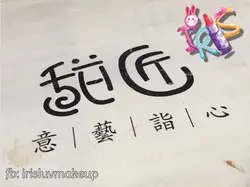 IRIS
甜匠
意|藝|詣|心
fb: irisluvmakeup